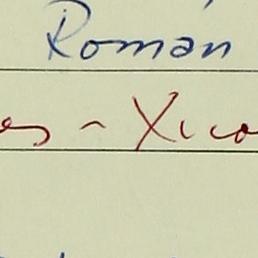 Román
es - Xico